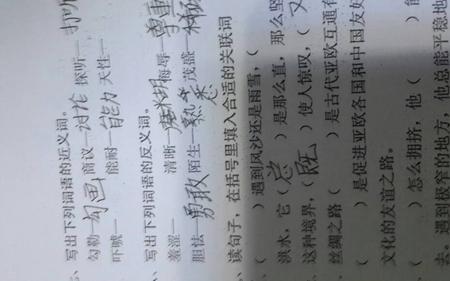 、写出下列词语的近义词。
勾勒—勾画 商议—讨论 探听—打听
吓唬— 能耐—能力 天性—
、写出下列词语的反义词。
羞涩— 清晰—模糊 侮辱—尊重
胆怯—勇敢 陌生—熟悉 茂盛—稀
、读句子，在括号里填入合适的关联词
（ ）遇到风沙还是雨雪，（
洪水，它（总）是那么直，那么坚
这种境界，（既）使人惊叹，（又
丝绸之路（ ）是古代亚欧互通有
（ ）是促进亚欧各国和中国友好
文化的友谊之路。
（ ）怎么拥挤，他（ ）能
去。遇到极窄的地方，他总能平稳地